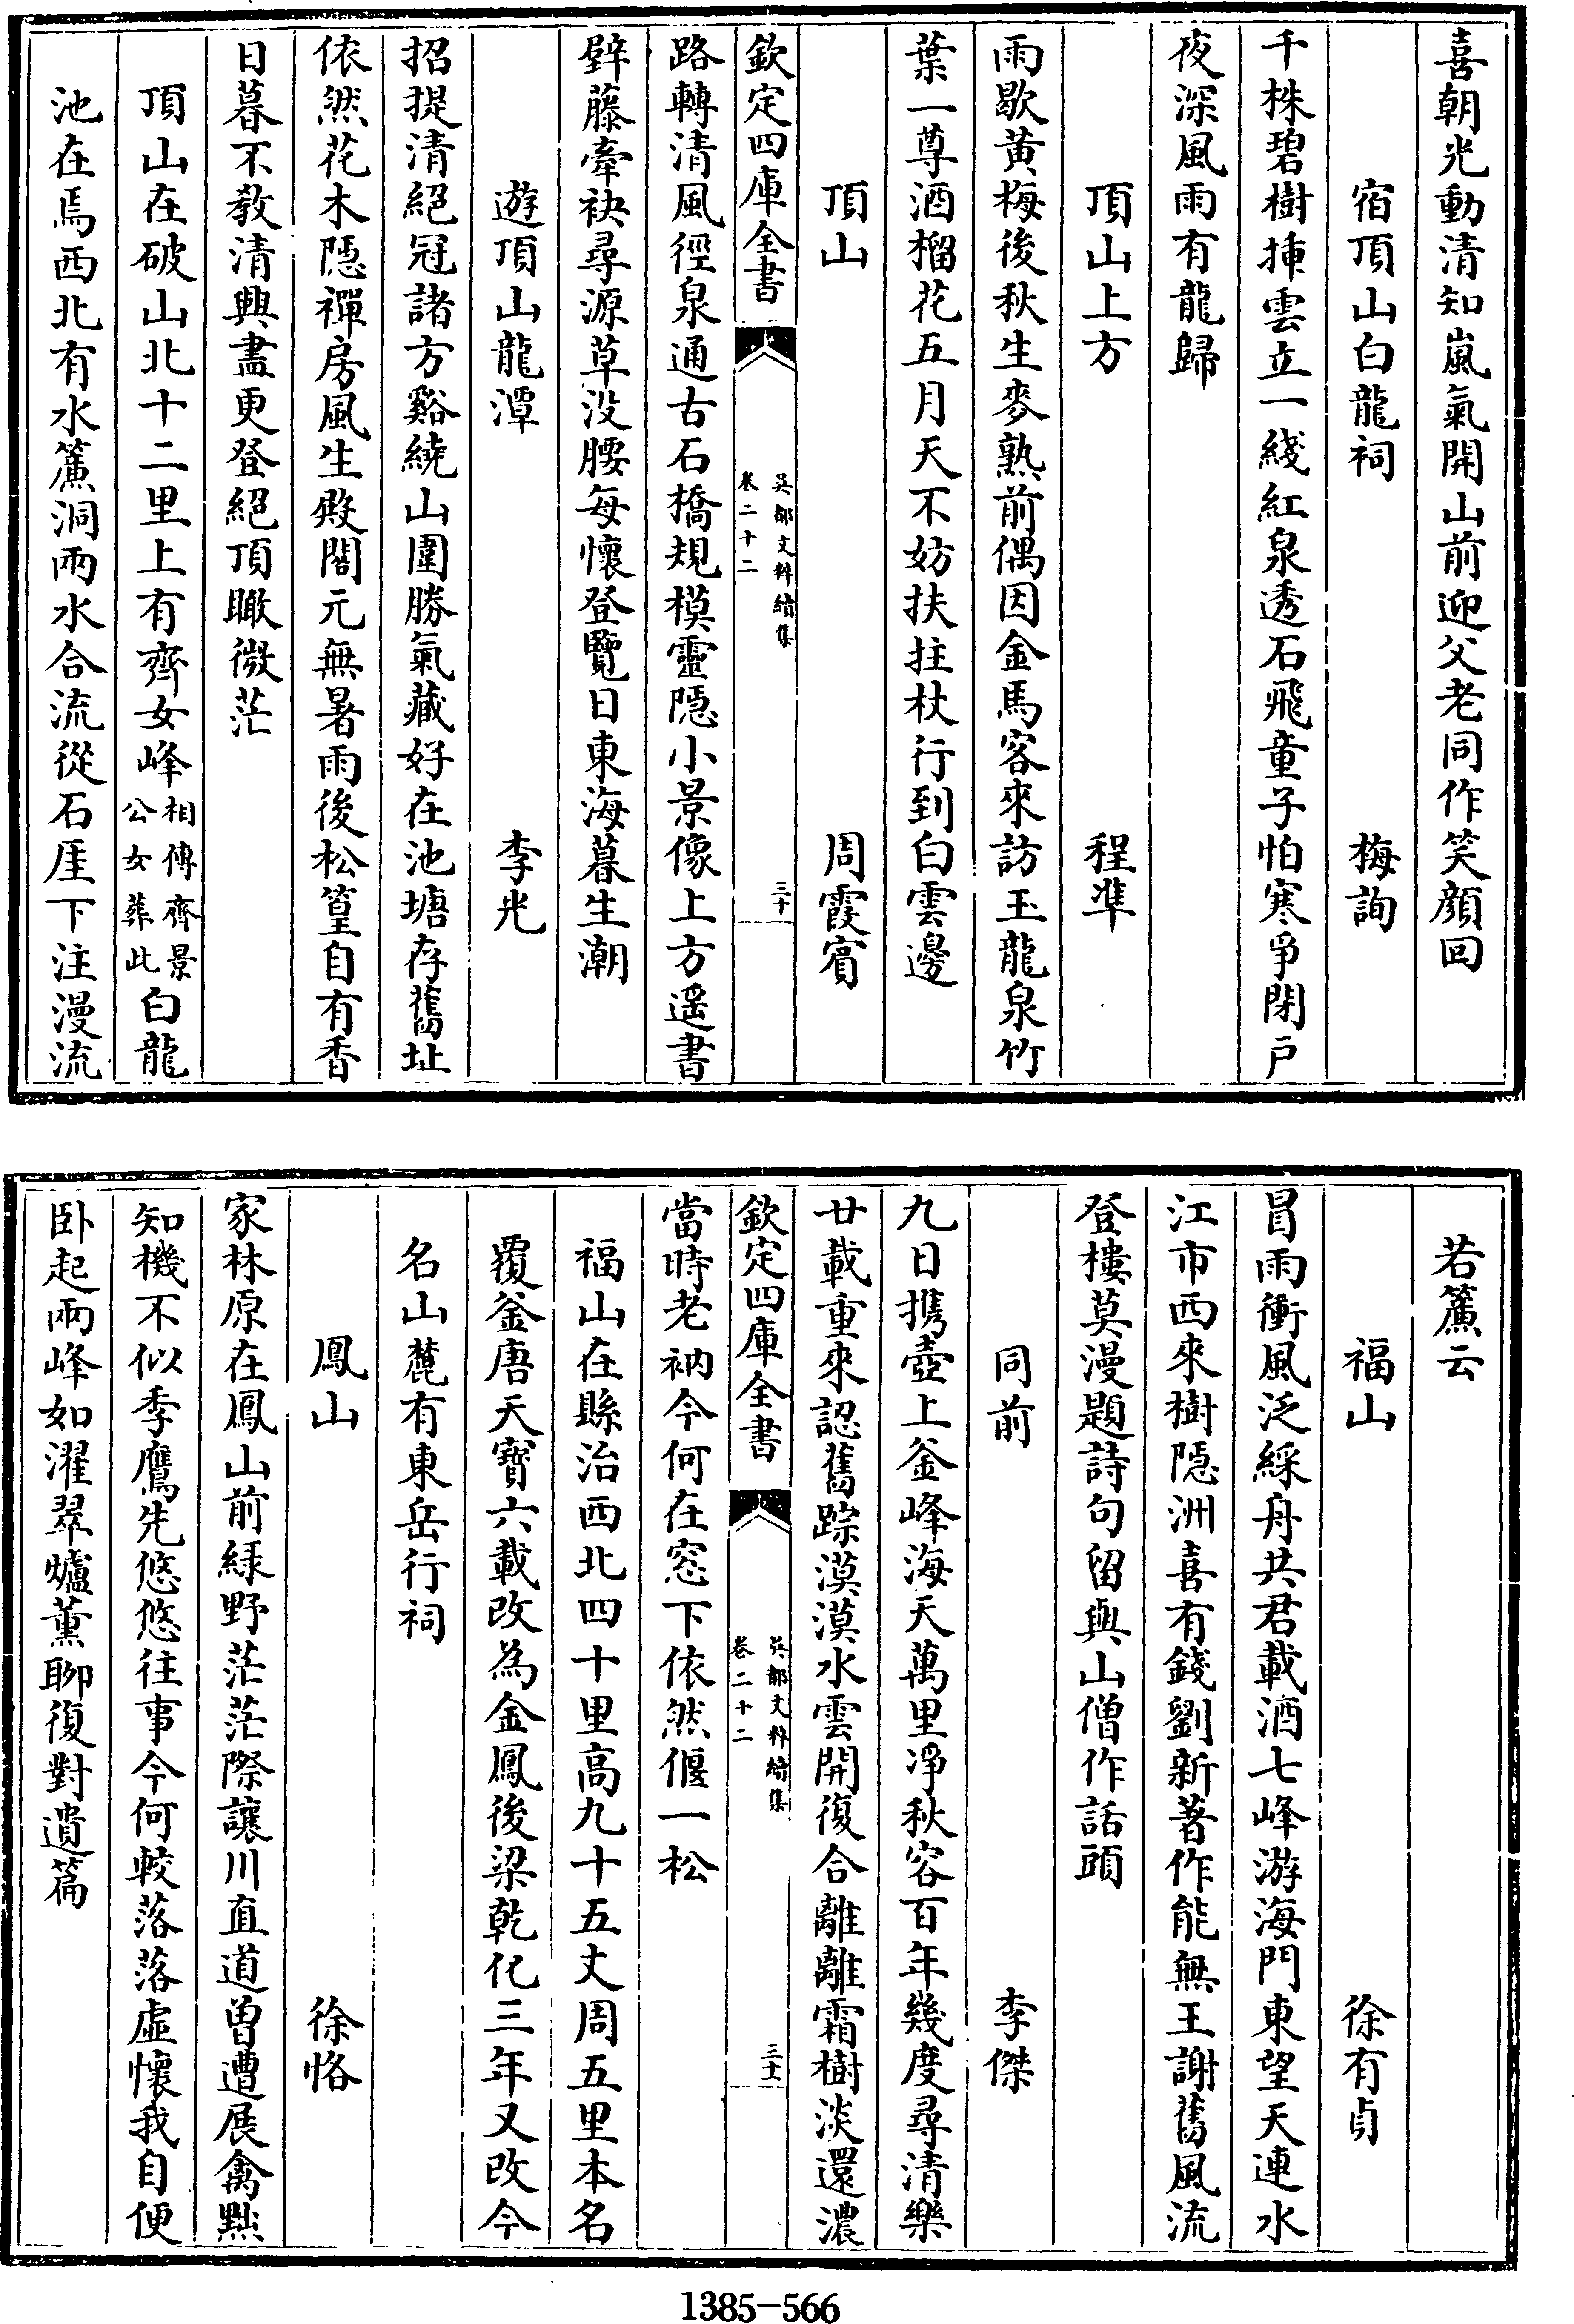 喜朝光動清知嵐氣開山前迎父老同作笑顔回
宿頂山白龍祠　梅詢
千株碧樹揷雲立一綫紅泉透石飛童子怕寒爭閉戸
夜深風雨有龍歸
頂山上方　程準
雨歇黄梅後秋生麥熟前偶因金馬客來訪玉龍泉竹
葉一尊酒榴花五月天不妨扶拄杖行到白雲邊
頂山　周霞賔
欽定四庫全書　吳都文粹續集　卷二十二　三十
路轉清風徑泉通古石橋規模靈隠小景像上方遥書
辥藤牽袂尋源草没腰每懷登覽日東海暮生潮
遊頂山龍潭　李光
招提清絕冠諸方谿繞山圍勝氣藏好在池塘存舊址
依然花木隠禪房風生殿閣元無暑雨後松篁自有香
日暮不教清興盡更登絕頂瞰微茫
頂山在破山北十二里上有齊女峰相傳齊景公女葬此白龍
池在焉西北有水簾洞兩水合流從石厓下注漫流
若簾云
福山　徐有貞
冒雨衝風泛綵舟共君載酒七峰游海門東望天連水
江市西來樹隠洲喜有錢劉新著作能無王謝舊風流
登樓莫漫題詩句留與山僧作話頭
同前　李傑
九日攜壺上釜峰海天萬里凈秋容百年幾度尋清樂
廿載重來認舊踪漠漠水雲開復合離離霜樹淡還濃
欽定四庫全書　吳都文粹續集　卷二十二　三十一
當時老衲今何在窓下依然偃一松
福山在縣治西北四十里高九十五丈周五里本名
覆釜唐天寶六載改為金鳳後梁乾化三年又改今
名山麓有東岳行祠
鳳山　徐恪
家林原在鳳山前緑野茫茫際讓川直道曽遭展禽黜
知機不似季鷹先悠悠往事今何較落落虛懷我自便
卧起兩峰如濯翠爐薰聊復對遺篇
1385-566